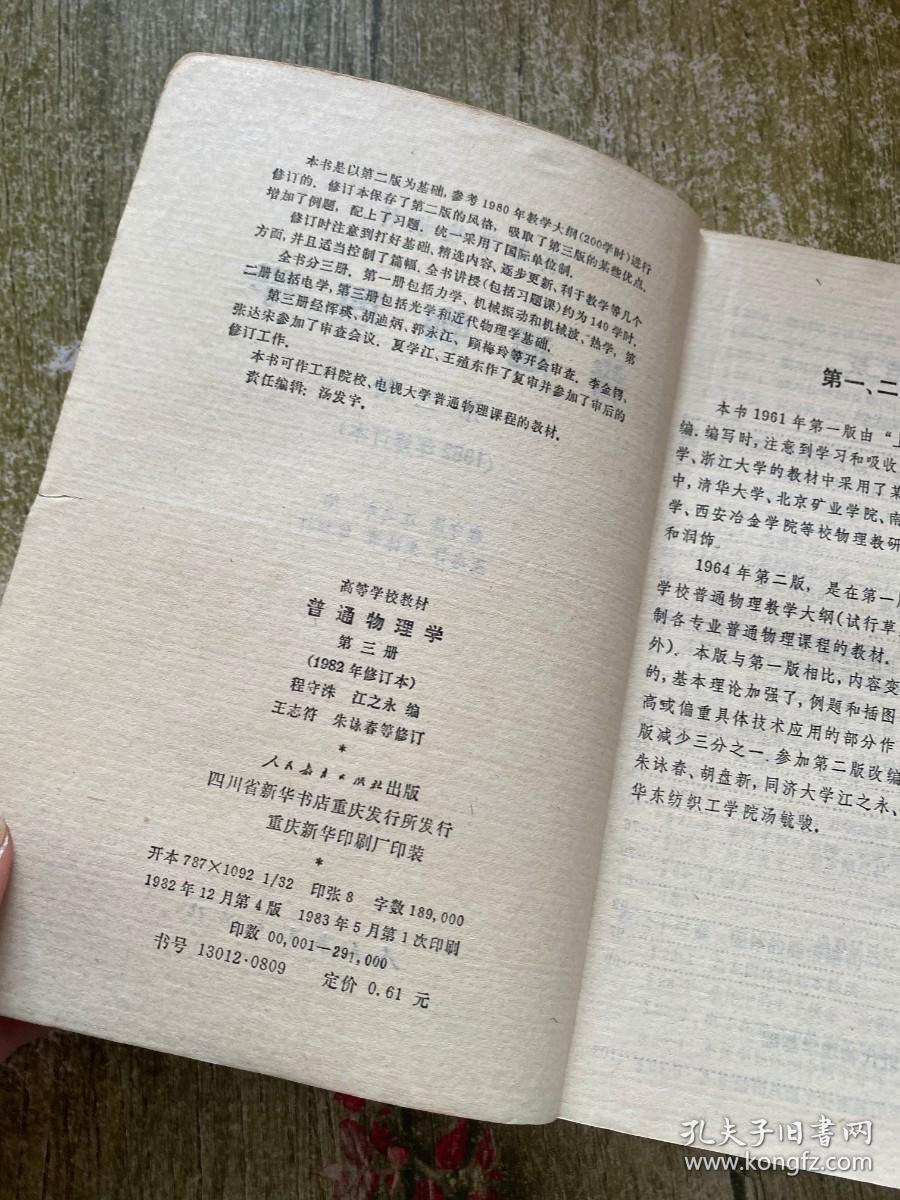 本书是以第二版为基础,参考1980年教学大纲(200学时)进行
修订的.修订本保存了第二版的风格,吸取了第三版的某些优点.
增加了例题,配上了习题.统一采用了国际单位制.
修订时注意到打好基础、精选内容、逐步更新、利于教学等几个
方面,并且适当控制了篇幅.全书讲授(包括习题课)约为140学时.
全书分三册,第一册包括力学、机械振动和机械波、热学,第
二册包括电学,第三册包括光学和近代物理学基础.
第三册经恽瑛、胡迪炳、郭永江、顾梅玲等开会审查.李金锷、
张达宋参加了审查会议.夏学江、王殖东作了复审并参加了审后的
修订工作.
本书可作工科院校、电视大学普通物理课程的教材.
责任编辑:汤发宇.
高等学校教材
普通物理学
第三册
(1982年修订本)
程守洙 江之永 编
王志符 朱咏春等修订
*
人民教育出版社出版
四川省新华书店重庆发行所发行
重庆新华印刷厂印装
*
开本787×1092 1/32 印张8 字数189,000
1982年12月第4版 1983年5月第1次印刷
印数00,001—291,000
书号 13012·0809 定价 0.61 元
第一、二
本书1961年第一版由“上
编.编写时,注意到学习和吸收
学、浙江大学的教材中采用了某
中,清华大学、北京矿业学院、南
学、西安冶金学院等校物理教研
和润饰.
1964年第二版,是在第一
学校普通物理教学大纲(试行草
制各专业普通物理课程的教材.
外).本版与第一版相比,内容变
的,基本理论加强了,例题和插图
高或偏重具体技术应用的部分作
版减少三分之一.参加第二版改编
朱咏春、胡盘新,同济大学江之永、
华东纺织工学院汤毓骏.
孔夫子旧书网
www.kongfz.com